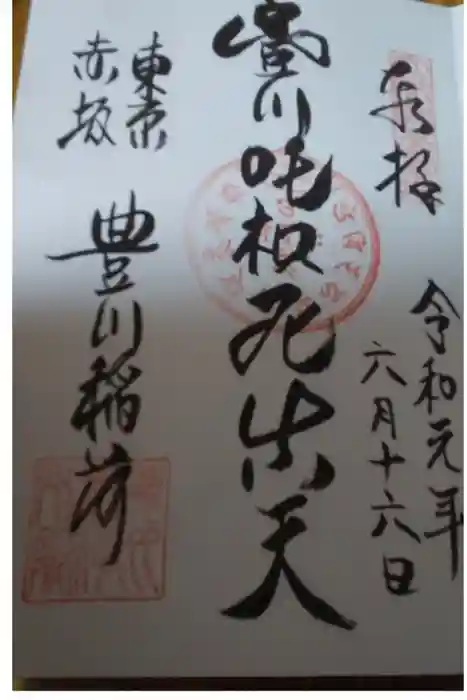 奉拝
令和元年
六月十六日
豊川吒枳尼真天
東京
赤坂
豊川稲荷